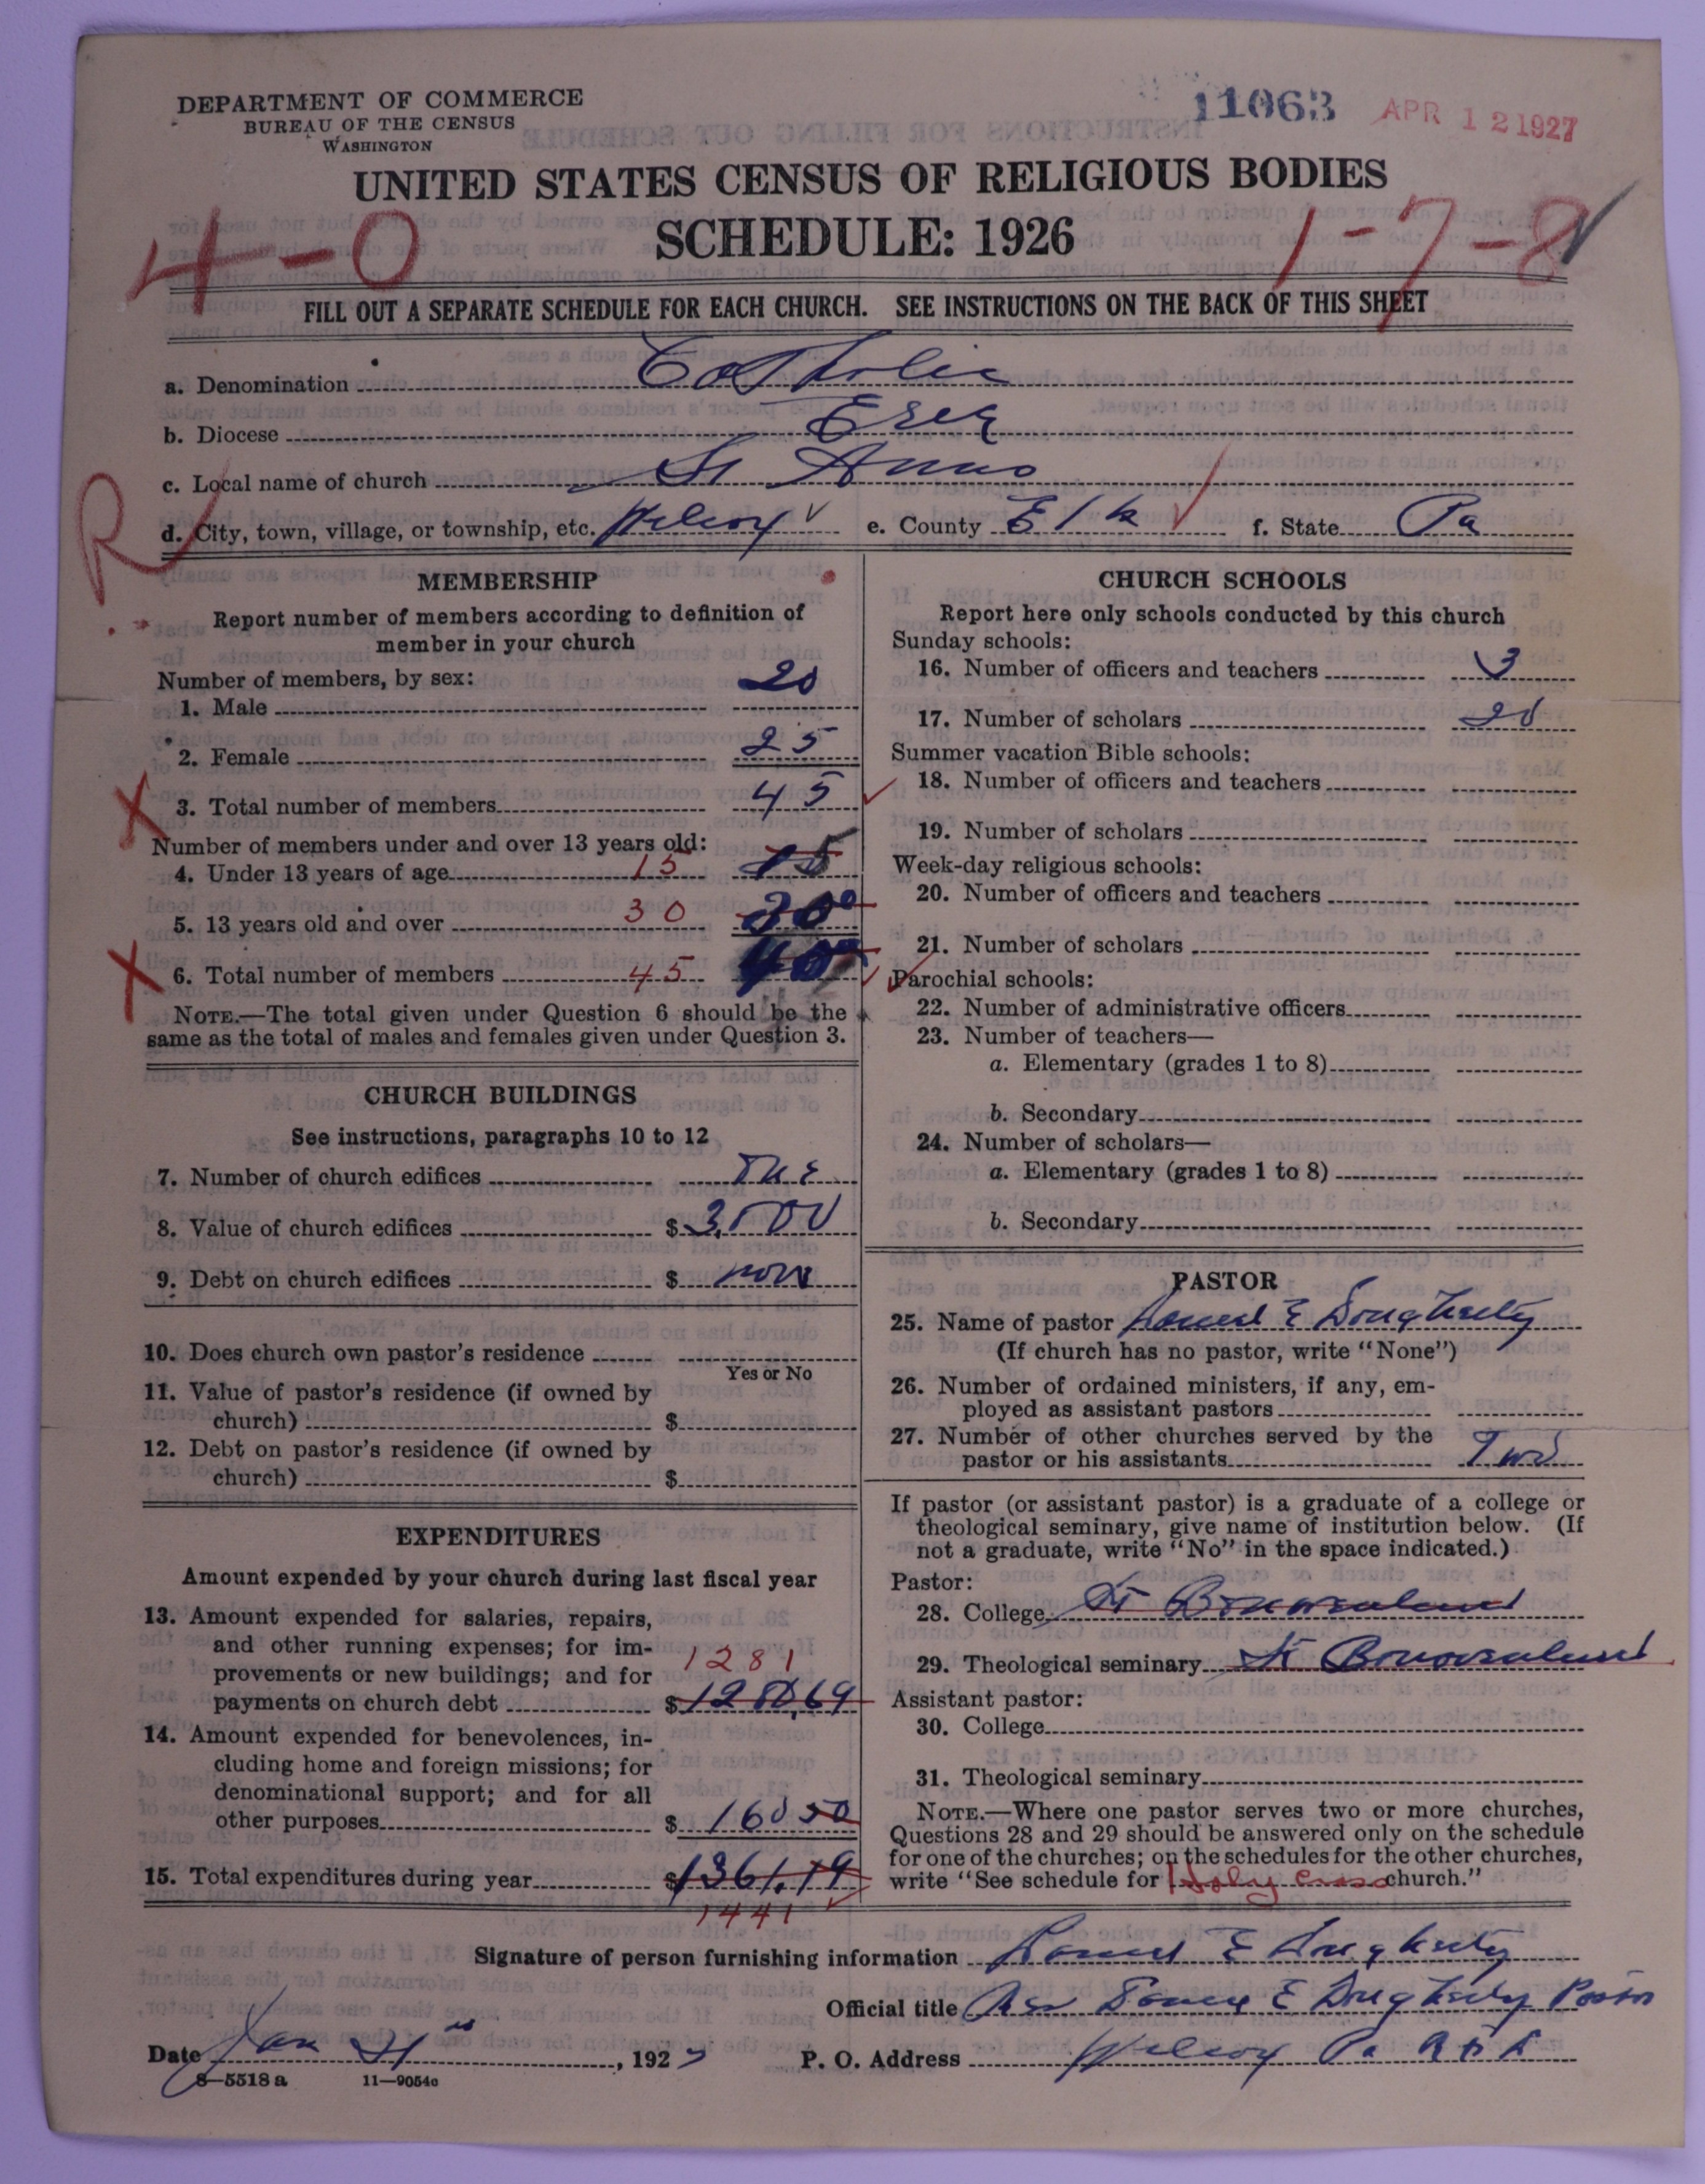 DEPARTMENT OF COMMERCE
BUREAU OF THE CENSUS
WASHINGTON
11063 APR 12 1927
UNITED STATES CENSUS OF RELIGIOUS BODIES
SCHEDULE: 1926
4-0 1-7-8
FILL OUT A SEPARATE SCHEDULE FOR EACH CHURCH. SEE INSTRUCTIONS ON THE BACK OF THIS SHEET
a. Denomination Catholic
b. Diocese Erie
c. Local name of church St Anns
R
d. City, town, village, or township, etc. Wilcox e. County Elk f. State Pa
MEMBERSHIP
Report number of members according to definition of
member in your church
Number of members, by sex:
1. Male 20
2. Female 25
X 3. Total number of members 45
Number of members under and over 13 years old:
4. Under 13 years of age 15 15
5. 13 years old and over 30
X 6. Total number of members 45
NOTE.—The total given under Question 6 should be the
same as the total of males and females given under Question 3.
CHURCH BUILDINGS
See instructions, paragraphs 10 to 12
7. Number of church edifices One
8. Value of church edifices $ 3,500
9. Debt on church edifices $ none
10. Does church own pastor's residence
Yes or No
11. Value of pastor's residence (if owned by
church) $
12. Debt on pastor's residence (if owned by
church) $
EXPENDITURES
Amount expended by your church during last fiscal year
13. Amount expended for salaries, repairs,
and other running expenses; for im-
provements or new buildings; and for
1281
payments on church debt $ 1280,69
14. Amount expended for benevolences, in-
cluding home and foreign missions; for
denominational support; and for all
other purposes $ 160 50
15. Total expenditures during year $ 1361.19
1441
CHURCH SCHOOLS
Report here only schools conducted by this church
Sunday schools:
16. Number of officers and teachers 3
17. Number of scholars 20
Summer vacation Bible schools:
18. Number of officers and teachers
19. Number of scholars
Week-day religious schools:
20. Number of officers and teachers
21. Number of scholars
Parochial schools:
22. Number of administrative officers
23. Number of teachers—
a. Elementary (grades 1 to 8)
b. Secondary
24. Number of scholars—
a. Elementary (grades 1 to 8)
b. Secondary
PASTOR
25. Name of pastor E Dougherty
(If church has no pastor, write "None")
26. Number of ordained ministers, if any, em-
ployed as assistant pastors
27. Number of other churches served by the
pastor or his assistants Two
If pastor (or assistant pastor) is a graduate of a college or
theological seminary, give name of institution below. (If
not a graduate, write "No" in the space indicated.)
Pastor:
28. College St Bonaventures
29. Theological seminary St Bonaventures
Assistant pastor:
30. College
31. Theological seminary
NOTE.—Where one pastor serves two or more churches,
Questions 28 and 29 should be answered only on the schedule
for one of the churches; on the schedules for the other churches,
write "See schedule for Holy Cross church."
Signature of person furnishing information E Dougherty
Official title Rev E Dougherty Pastor
Date Jan , 1927 P. O. Address Wilcox Pa
8—5518 a 11—9054c